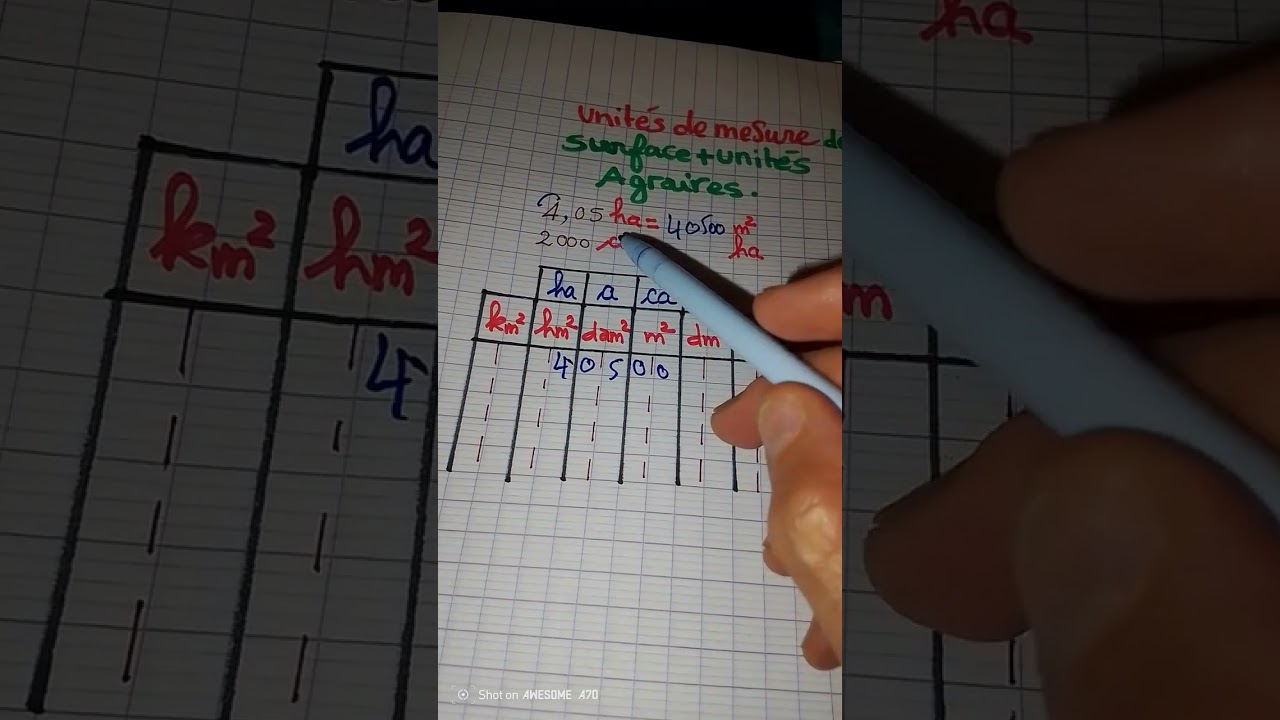 unités de mesure de
surface + unités
Agraires.
4,05 ha = 40500 m²
2000 ha
ha a ca
km² hm² dam² m² dm
4 0 5 0 0
Shot on AWESOME A70